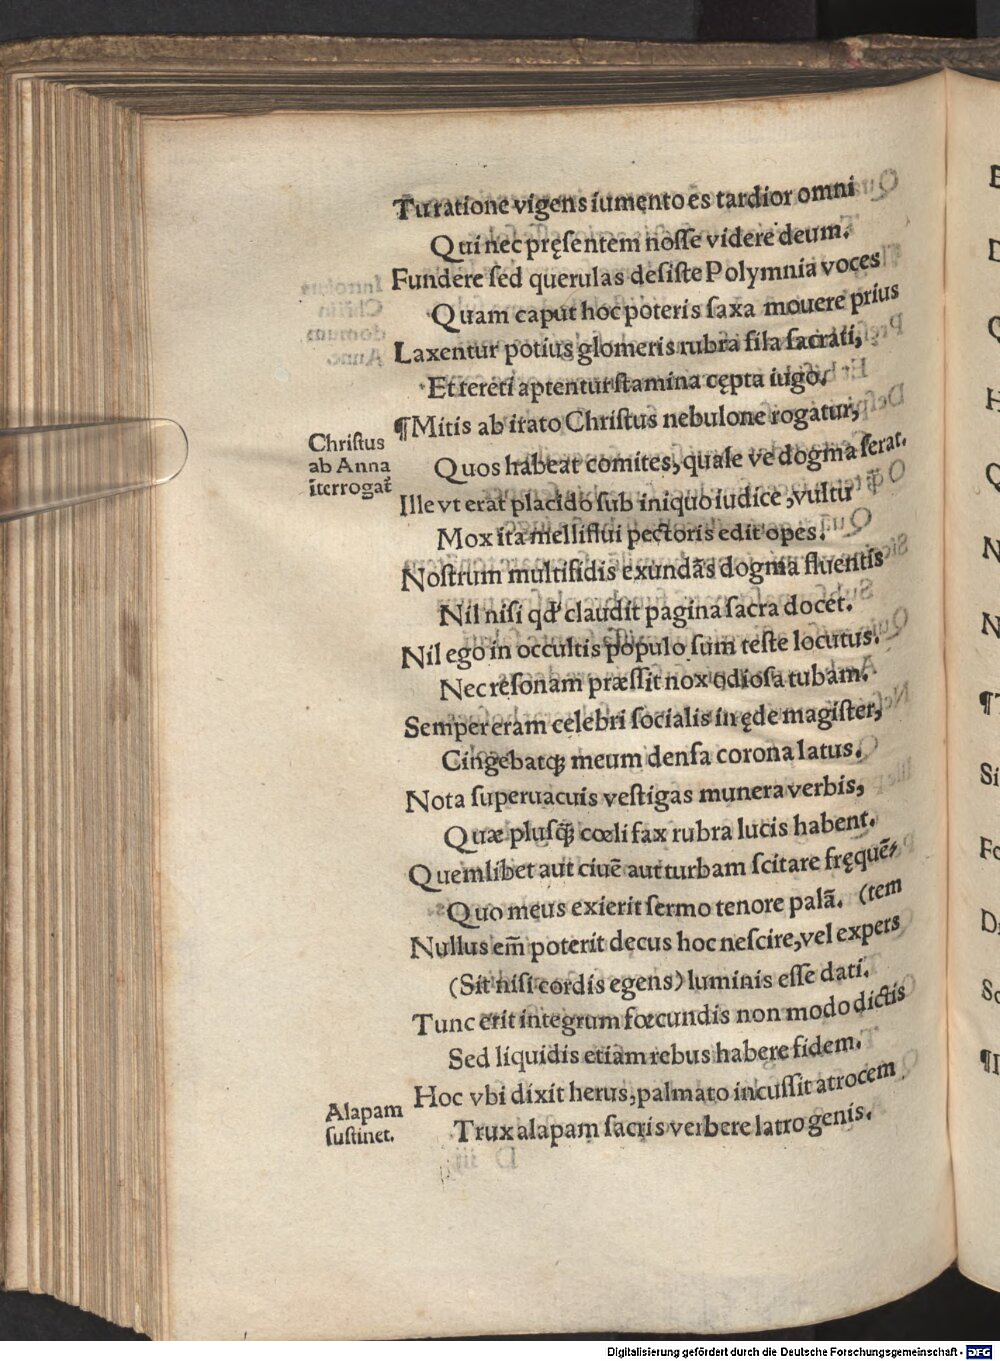 Tu ratione vigens iumento es tardior omni
Qui nec pręſentem noſſe videre deum.
Fundere ſed querulas deſiſte Polymnia voces
Quam caput hoc poteris ſaxa mouere prius
Laxentur potius glomeris rubra fila ſacrati,
Et tereti aptentur ſtamina cępta iugo.
¶Mitis ab irato Chriſtus nebulone rogatur,
Chriſtus
ab Anna
īterrogat̄
Quos habeat comites, quale ve dogma ferat.
Ille vt erat placido ſub iniquo iudice, vultu
Mox ita melliflui pectoris edit opes.
Noſtrum multifidis exundās dogma fluentis
Nil niſi qđ claudit pagina ſacra docet.
Nil ego in occultis populo ſum teſte locutus.
Nec reſonam præſſit nox odioſa tubam.
Semper eram celebri ſocialis in ęde magiſter,
Cingebatqʒ meum denſa corona latus.
Nota ſuperuacuis veſtigas munera verbis,
Quæ pluſq̃ʒ cœli fax rubra lucis habent.
Quemlibet aut ciuē aut turbam ſcitare fręquē-
Quo meus exierit ſermo tenore palā. (tem
Nullus em̄ poterit decus hoc neſcire, vel expers
(Sit niſi cordis egens) luminis eſſe dati.
Tunc erit integrum fœcundis non modo dictis
Sed liquidis etiam rebus habere fidem.
Hoc vbi dixit herus, palmato incuſſit atrocem
Alapam
ſuſtinet.
Trux alapam ſacris verbere latro genis.
Digitalisierung gefördert durch die Deutsche Forschungsgemeinschaft - DFG